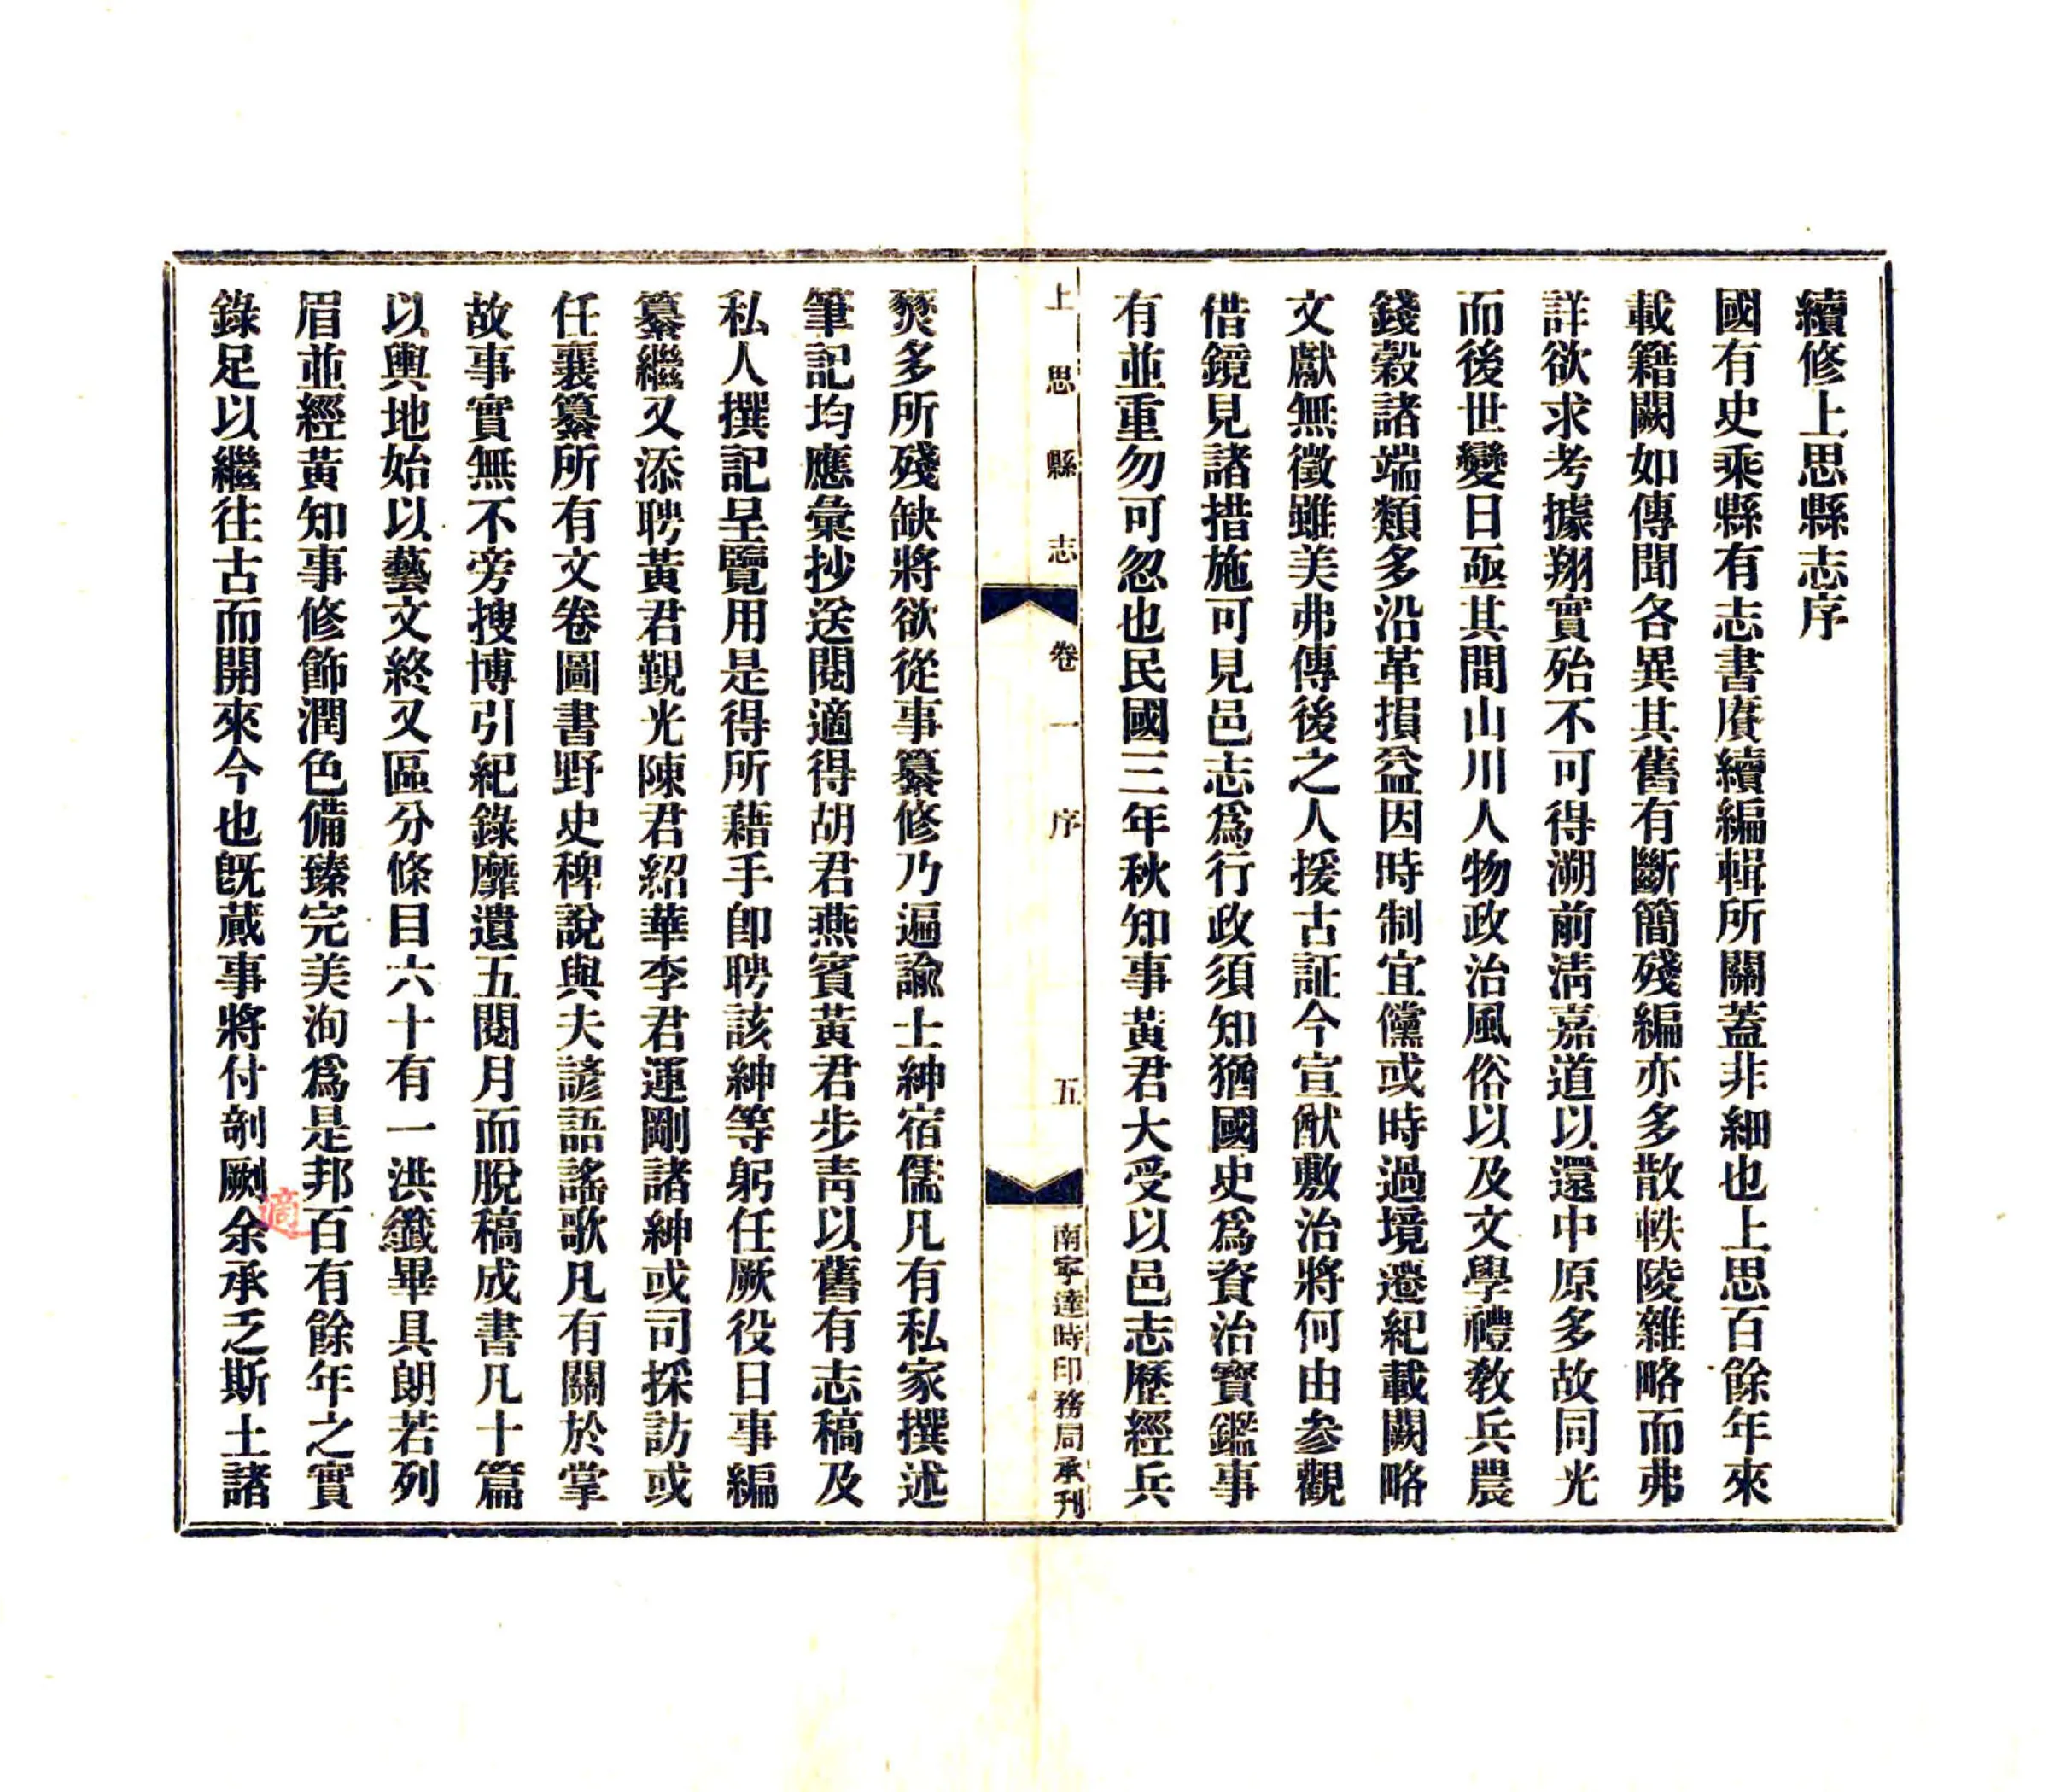 續修上思縣志序
國有史乘縣有志書賡續編輯所關蓋非細也上思百餘年來
載籍闕如傳聞各異其舊有斷簡殘編亦多散軼陵雜略而弗
詳欲求考據翔實殆不可得溯前清嘉道以還中原多故同光
而後世變日亟其間山川人物政治風俗以及文學禮教兵農
錢穀諸端類多沿革損益因時制宜儻或時過境遷紀載闕略
文獻無徵雖美弗傳後之人援古証今宣猷敷治將何由參觀
借鏡見諸措施可見邑志爲行政須知猶國史爲資治寶鑑事
有並重勿可忽也民國三年秋知事黃君大受以邑志歷經兵
上思縣志 卷一 序 五 南寧達時印務局承刊
燹多所殘缺將欲從事纂修乃遍諭士紳宿儒凡有私家撰述
筆記均應彙抄送閱適得胡君燕賓黃君步青以舊有志稿及
私人撰記呈覽用是得所藉手卽聘該紳等躬任厥役日事編
纂繼又添聘黃君觐光陳君紹華李君運剛諸紳或司採訪或
任襄纂所有文卷圖書野史稗說與夫諺語謠歌凡有關於掌
故事實無不旁搜博引紀錄靡遺五閱月而脫稿成書凡十篇
以輿地始以藝文終又區分條目六十有一洪纖畢具朗若列
眉並經黃知事修飾潤色備臻完美洵爲是邦百有餘年之實
錄足以繼往古而開來今也旣蕆事將付剞劂余承乏斯土諸
適